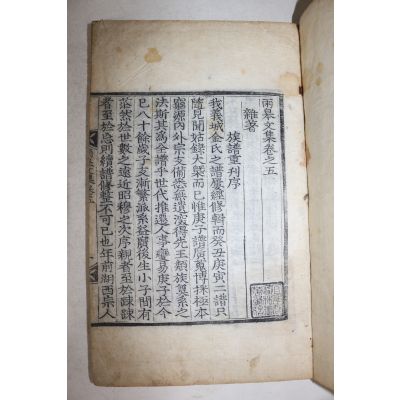 雨皋文集卷之五
雜著
族譜重刊序
我義城金氏之譜屢經修輯而癸丑庚寅二譜只
隨見聞姑錄大槩而已惟庚子譜廣蒐博採極本
窮源內外宗支備悉無遺深得先王類族敍系之
法斯其爲全譜乎世代推遷人事變易庚子於今
已八十餘歲子支漸繁派系益蕃後生小子間有
茫然於世數之遠近昭穆之次序親者至於疎疎
者至於忘則續譜修整不可已也年前湖西宗人